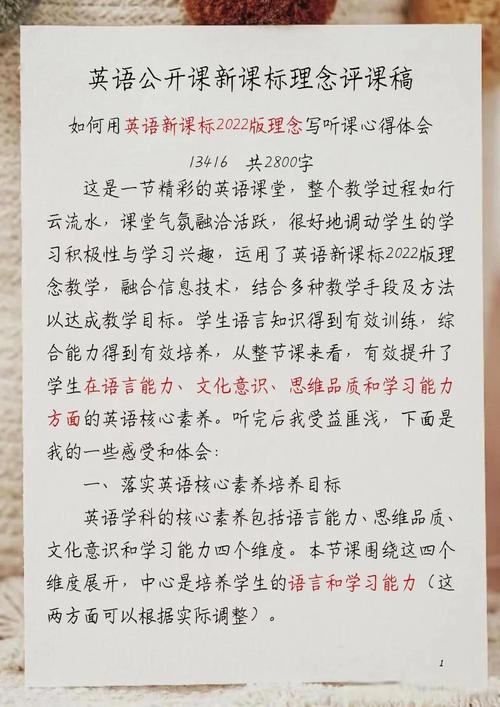 英语公开课新课标理念评课稿
如何用英语新课标2022版理念写听课心得体会
13416 共2800字
这是一节精彩的英语课堂，整个教学过程如行
云流水，课堂气氛融洽活跃，很好地调动学生的学
习积极性与学习兴趣，运用了英语新课标2022版理
念教学，融合信息技术，结合多种教学手段及方法
以达成教学目标。学生语言知识得到有效训练，综
合能力得到有效培养，从整节课来看，有效提升了
学生在语言能力、文化意识、思维品质和学习能力
方面的英语核心素养。听完后我受益匪浅，下面是
我的一些感受和体会：
一、落实英语核心素养培养目标
英语学科的核心素养包括语言能力、思维品质、
文化意识和学习能力四个维度。本节课围绕这四个
维度展开，中心是培养学生的语言和学习能力（这
两方面可以根据实际调整）。
1